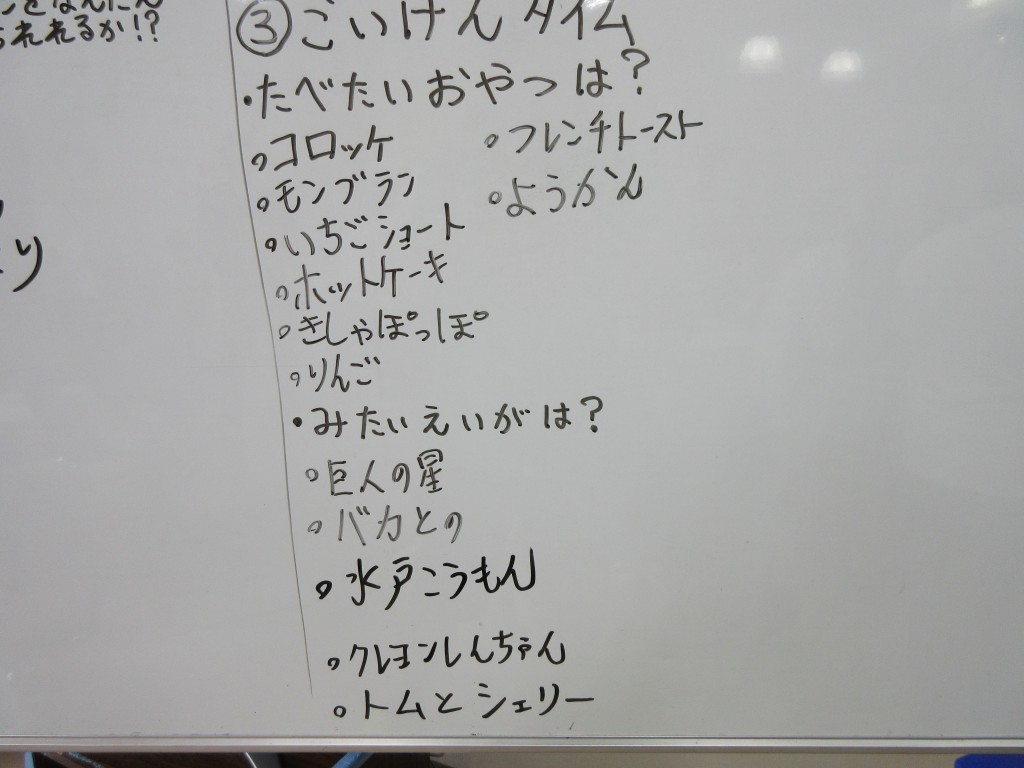 られるか!?
③ごいけんタイム
・たべたいおやつは?
。コロッケ
。モンブラン
。いちごショート
。ホットケーキ
。きしゃぽっぽ
。りんご
。フレンチトースト
。ようかん
・みたいえいがは?
。巨人の星
。バカとの
。水戸こうもん
。クレヨンしんちゃん
。トムとシェリー